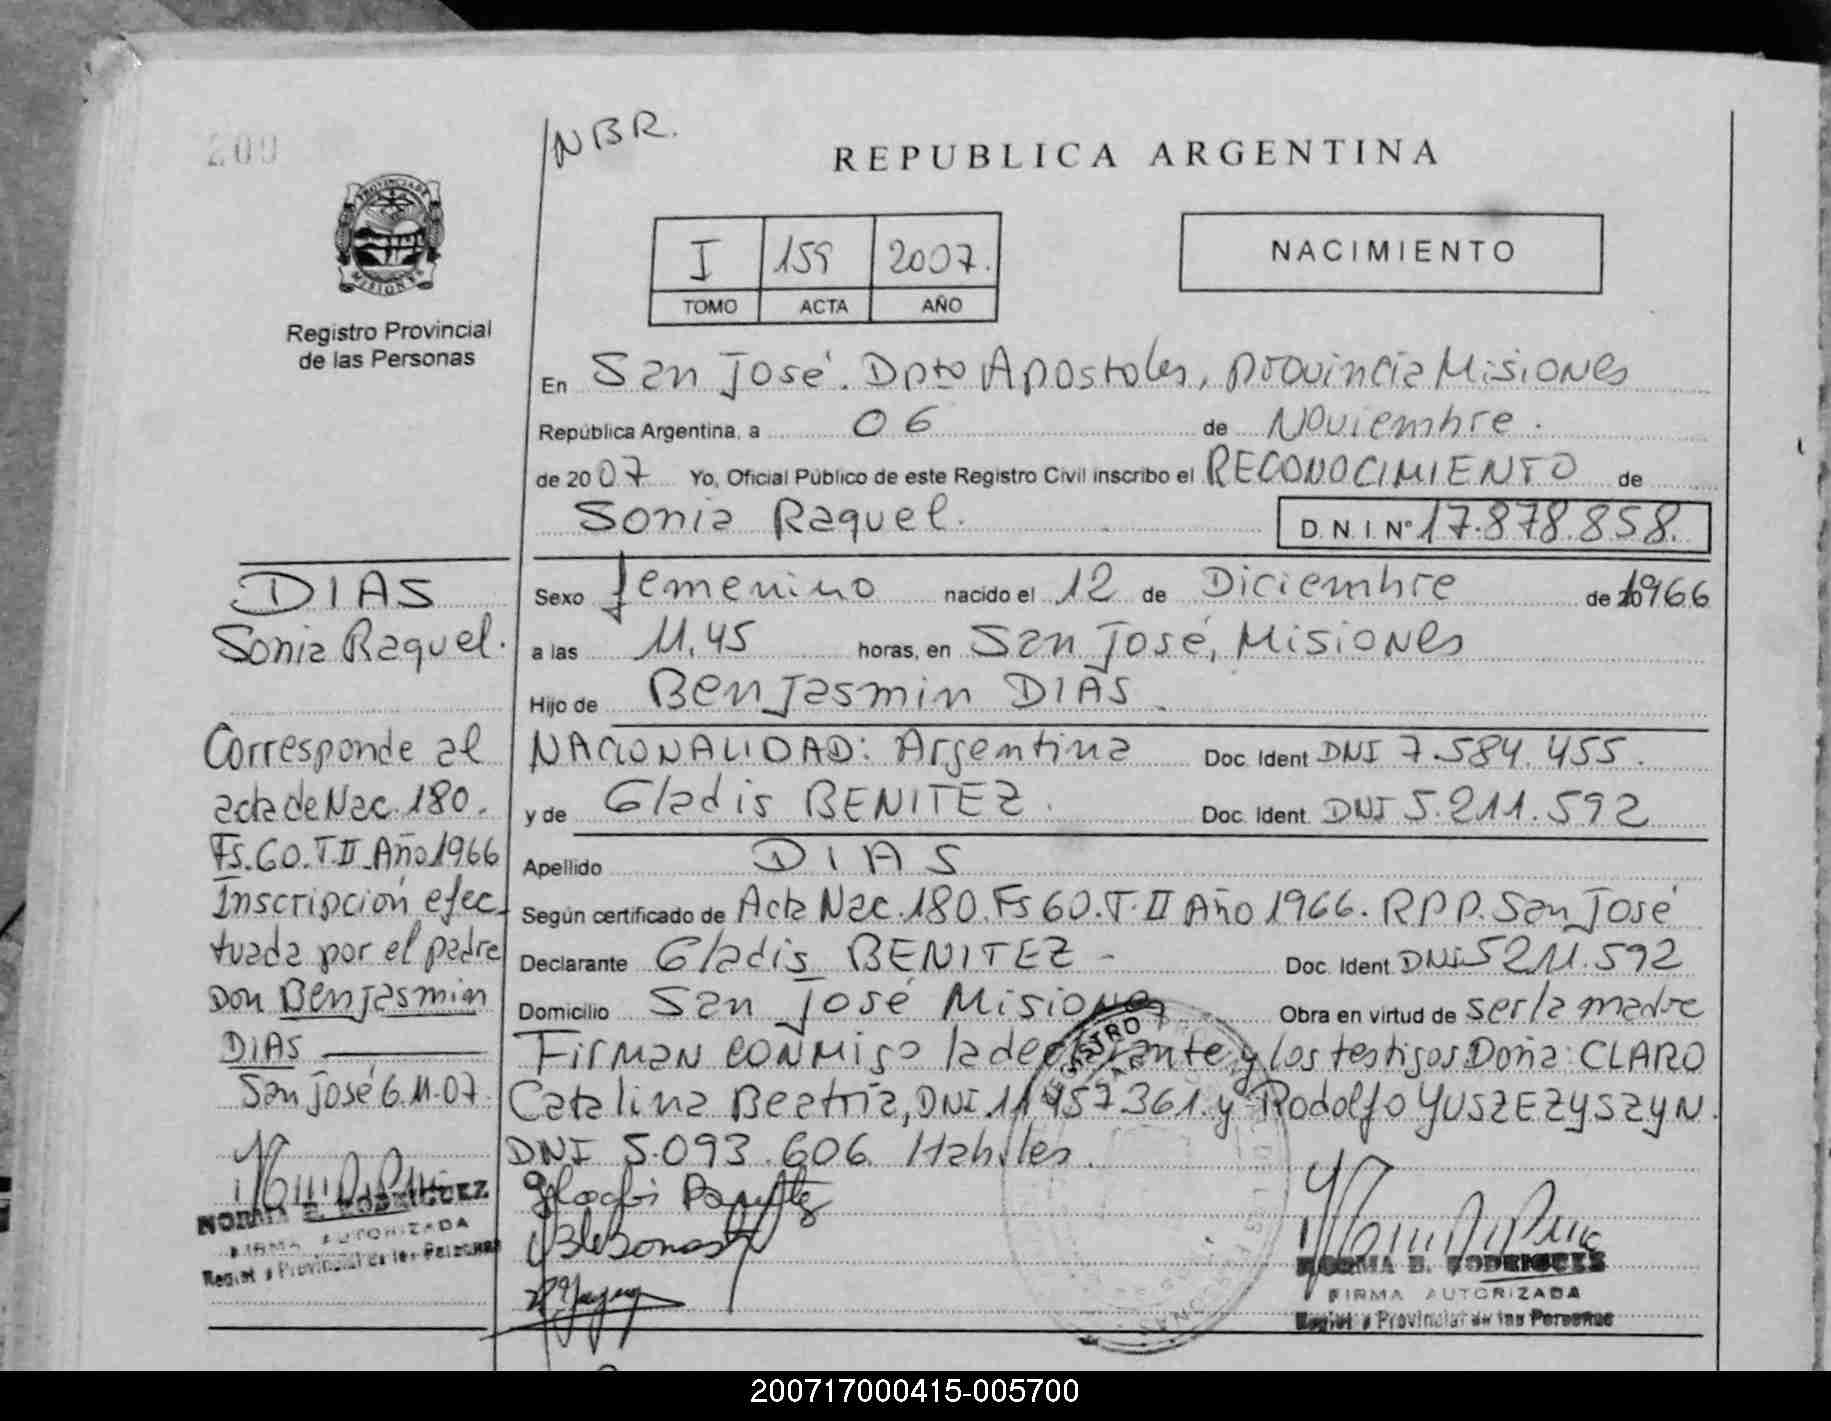 200
NBR.
REPUBLICA ARGENTINA
PROVINCIA DE
MISIONES
Registro Provincial
de las Personas
I 159 2007.
TOMO ACTA AÑO
NACIMIENTO
En San José. Dpto Apostoles, provincia Misiones
República Argentina, a 06 de Noviembre.
de 2007 Yo, Oficial Público de este Registro Civil inscribo el RECONOCIMIENTO de
Sonia Raquel. D.N.I. N° 17.878.858.
DIAS
Sonia Raquel.
Corresponde al
acta de Nac. 180.
Fs. 60. T. II Año 1966
Inscripción efec-
tuada por el padre
Don Benjasmin
DIAS
San José 6.11.07.
NORMA E. RODRIGUEZ
FIRMA AUTORIZADA
Regist o Provincial de las Personas
Sexo femenino nacido el 12 de Diciembre de 1966
a las 11.45 horas, en San José, Misiones
Hijo de Benjasmin DIAS.
NACIONALIDAD: Argentina Doc. Ident. DNI 7.584.455.
y de Gladis BENITEZ. Doc. Ident. DNI 5.211.592
Apellido DIAS
Según certificado de Acta Nac. 180. Fs 60. T. II Año 1966. RPP. San José
Declarante Gladis BENITEZ - Doc. Ident. DNI 5211.592
Domicilio San José Misiones Obra en virtud de ser la madre
Firman conmigo la declarante y los testigos Doña: CLARO
Catalina Beatriz, DNI 11 957 361. y Rodolfo YUSZEZYSZYN.
DNI 5.093.606. Habiles.
REGISTRO
NORMA E. RODRIGUES
FIRMA AUTORIZADA
Regist o Provincial de las Personas
200717000415-005700